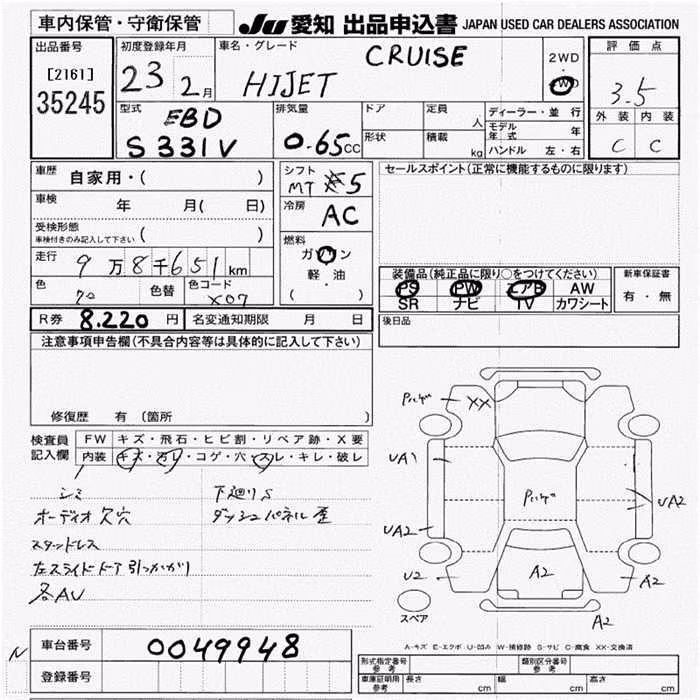 車内保管・守衛保管 JU 愛知 出品申込書 JAPAN USED CAR DEALERS ASSOCIATION
出品番号 初度登録年月 車名・グレード 評価点
[2161] 23 2月 HIJET CRUISE 2WD・4WD 3.5
35245 型式 排気量 ドア 定員 人 ディーラー・並行 外装 内装
EBD モデル年式 年 C C
S331V 0.65cc 形状 積載 kg ハンドル 左・右
車歴 自家用・( ) シフト MT 5 セールスポイント(正常に機能するものに限ります)
車検 年 月( 日) 冷房 AC
受検形態 車検付きのみ記入して下さい ( ) 燃料
走行 9万8千651km ガソリン
軽・油 装備品(純正品に限り○をつけてください) 新車保証書
色 色替 色コード X07 ( ) PS PW エアB AW 有・無
SR ナビ TV カワシート
R券 8.220円 名変通知期限 月 日 後日品
注意事項申告欄(不具合内容等は具体的に記入して下さい)
修復歴 有 (箇所
検査員 FW キズ・飛石・ヒビ割・リペア跡・X要
記入欄 内装 キズ・汚レ・コゲ・穴・スレ・キレ・破レ
シミ 下廻りS
オーディオ欠穴 ダッシュパネル歪
スタッドレス
左スライドドア引っかかり
各AU
XX
UA1
UA2
UA2
U2 A2 A2
スペア A2
A-キズ E-エクボ U-凹み W-補修跡 S-サビ C-腐食 XX-交換済
N 車台番号 0049948
登録番号
形式指定番号 参考 類別区分番号 参考
車庫証明用 参考 長さ cm 幅 cm 高さ cm